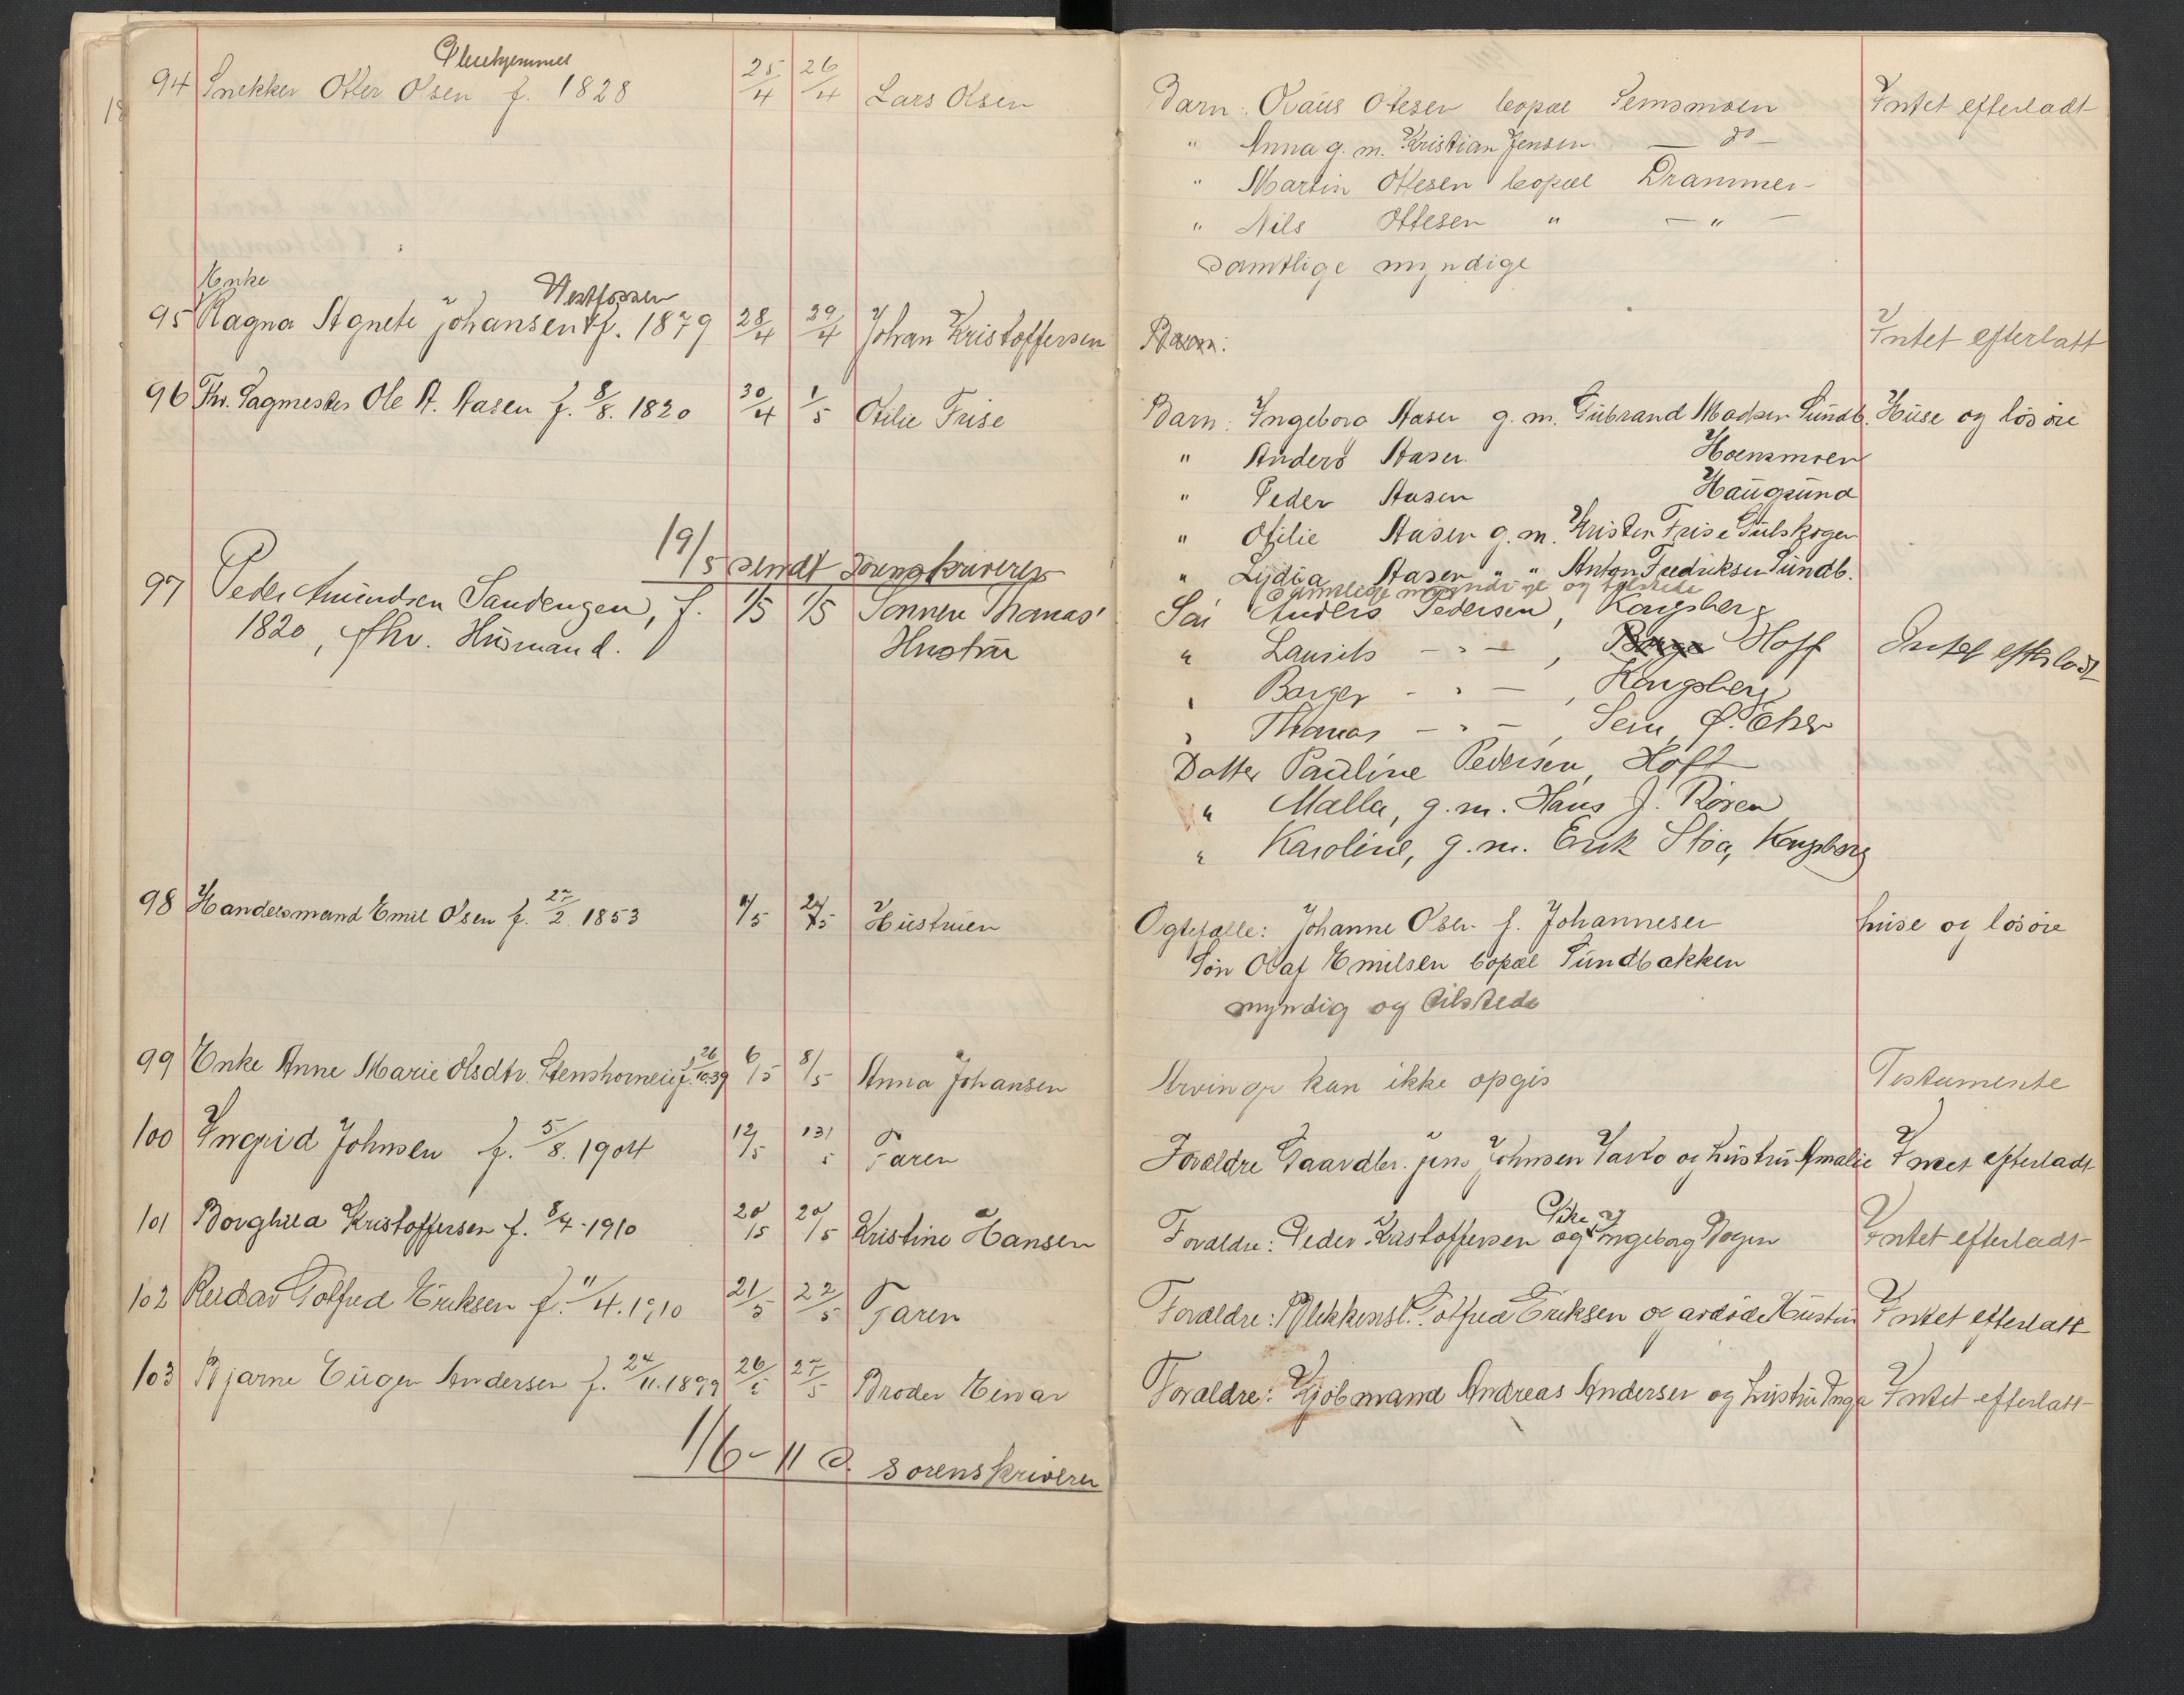 94 Snekker Otter Olsen f. 1828 25/4 26/4 Lars Olsen Barn: Claus Otesen bopæl Semsmoen Intet efterladt
" Anna g. m. Kristian Jensen — do —
" Martin Ottesen bopæl Drammen
" Nils Ottesen " — " —
Samtlige myndige
Enke Vestfossen
95 Ragna Agnete Johansen f. 1879 28/4 29/4 Johan Kristoffersen Barn: Intet efterlatt
96 Fhv. Sagmester Ole A. Aasen f. 8/8. 1820 30/4 1/5 Otilie Frise Barn: Ingeborg Aasen g. m. Gubrand Madsen Sundb. Huse og løsøre
" Anders Aasen Hoensmoen
" Peder Aasen Haugsund
" Otilie Aasen g. m. Kristen Frise Gulskogen
19/5 sendt Sorenskriveren
" Lydia Aasen " " Anton Fredriksen Sundb.
Samtlige myndige og tilstede
97 Peder Amundsen Sandengen, f. 1/5 1/5 Sønnen Thomas' Søn Anders Pedersen, Kongsberg
1820, fhv. Husmand. Hustru " Laurits — " —, Hoff Intet efterladt
" Borger — " —, Kongsberg
" Thomas — " —, Sem, Ø. Eker
Datter Pauline Pedersen, Hoff
" Malla, g. m. Hans J. Røren
" Karoline, g. m. Erik Stoa, Kongsberg
98 Handelsmand Emil Olsen f. 27/2 1853 4/5 Hustruen Ægtefælle: Johanne Olsen f. Johannesen huse og løsøre
Søn Olaf Emilsen bopæl Sundbakken
myndig og tilstede
99 Enke Anne Marie Olsdtr. Stenshorneie f. 26/10 39 6/5 8/5 Anna Johansen Arvinger kan ikke opgis Testamente
100 Ingrid Johnsen f. 5/8. 1904 12/5 13/5 Faren Forældre Gaardbr. Jens Johnsen Varlo og hustru Amalie Intet efterladt
101 Borghild Kristoffersen f. 8/4. 1910 20/5 20/5 Kristine Hansen Forældre: Peder Kristoffersen og Pike Ingeborg Hogen Intet efterladt
102 Reidar Gotfred Eriksen f. 11/4. 1910 21/5 22/5 Faren Forældre: Blikkensl. Gotfred Eriksen og avdøde Hustru Intet efterlatt
103 Bjarne Eugen Andersen f. 24/11. 1899 26/5 27/5 Broder Einar Forældre: Kjøbmand Andreas Andersen og hustru Inga Intet efterlatt
1/6-11 S. Sorenskriveren